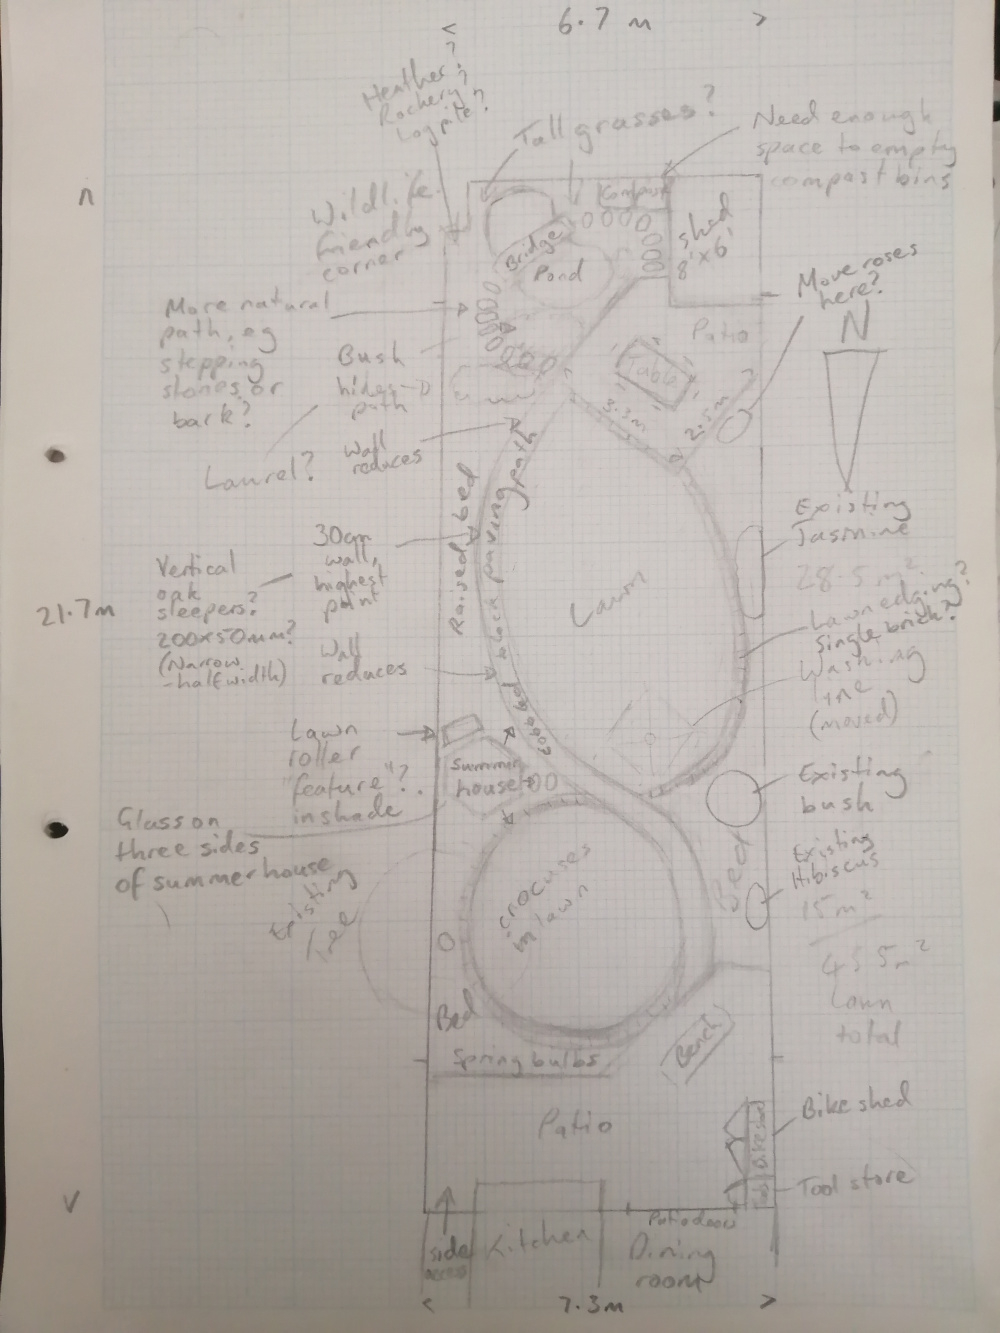 6.7 m
Heather?
Rockery?
Log pile?
Tall grasses?
Need enough
space to empty
compost bins
Wildlife
friendly
corner
Compost
shed
8'x6'
Bridge
Pond
Move roses
here?
N
More natural
path, eg
stepping
stones or
bark?
Patio
Table
3.3m
2.5m
Bush
hides
path
Wall
reduces
Laurel?
Raised bed
Cobbled block paving path
Existing
Jasmine
28.5 m²
30cm
wall,
highest
point
Vertical
oak
sleepers?
200x50mm?
(Narrow
-half width)
21.7m
Lawn
Lawn edging?
Single brick?
Washing
line
(moved)
Wall
reduces
Lawn
roller
"feature"?
in shade
Summer
house
Existing
bush
Glass on
three sides
of summerhouse
Existing
tree
crocuses
in lawn
Bed
Existing
Hibiscus
15m²
45.5m²
Lawn
total
Bed
Spring bulbs
Bench
Patio
Bike shed
Bike shed
Tool store
Patio doors
side
access
Kitchen
Dining
room
7.3m